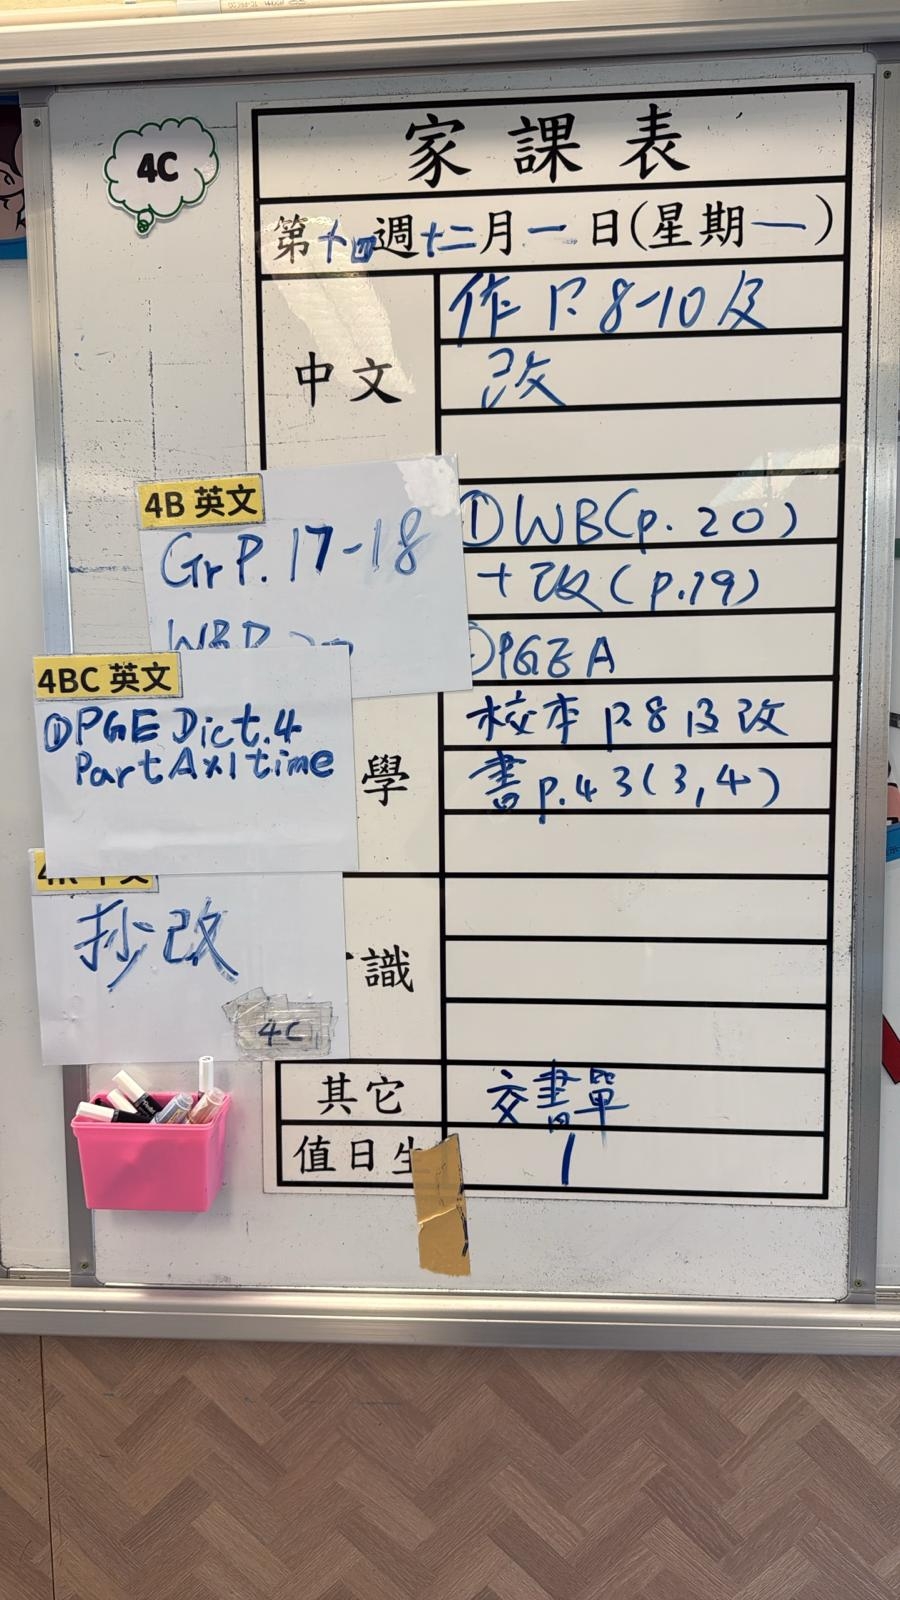 4C
家課表
第十四週十二月一日(星期一)
中文
作 P. 8-10 及
改
4B 英文
Gr P. 17-18
①WB(p. 20)
+ 改(p.19)
②PGE A
4BC 英文
①PGE Dict.4
Part A x1 time
學
校本 P.8 及改
書 p.43(3,4)
抄改
4C
識
其它
交書單
值日生
1